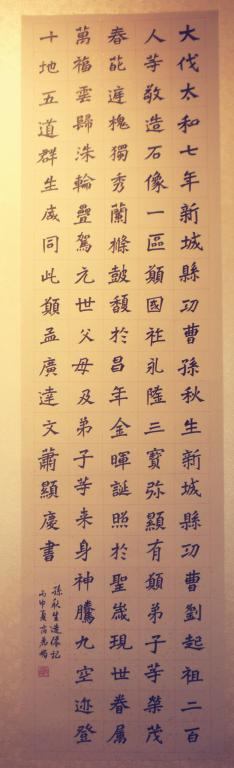 大伐太和七年新城縣功曹孫秋生新城縣功曹劉起祖二百
人等敬造石像一區願國祚永隆三寶弥顯有願弟子等榮茂
春葩庭槐獨秀蘭條鼓馥於昌年金暉誕照於聖歲現世眷屬
萬福雲歸洙輪疊駕元世父母及弟子等来身神騰九空迹登
十地五道群生咸同此願孟廣達文蕭顯慶書
孫秋生造像記
丙申夏